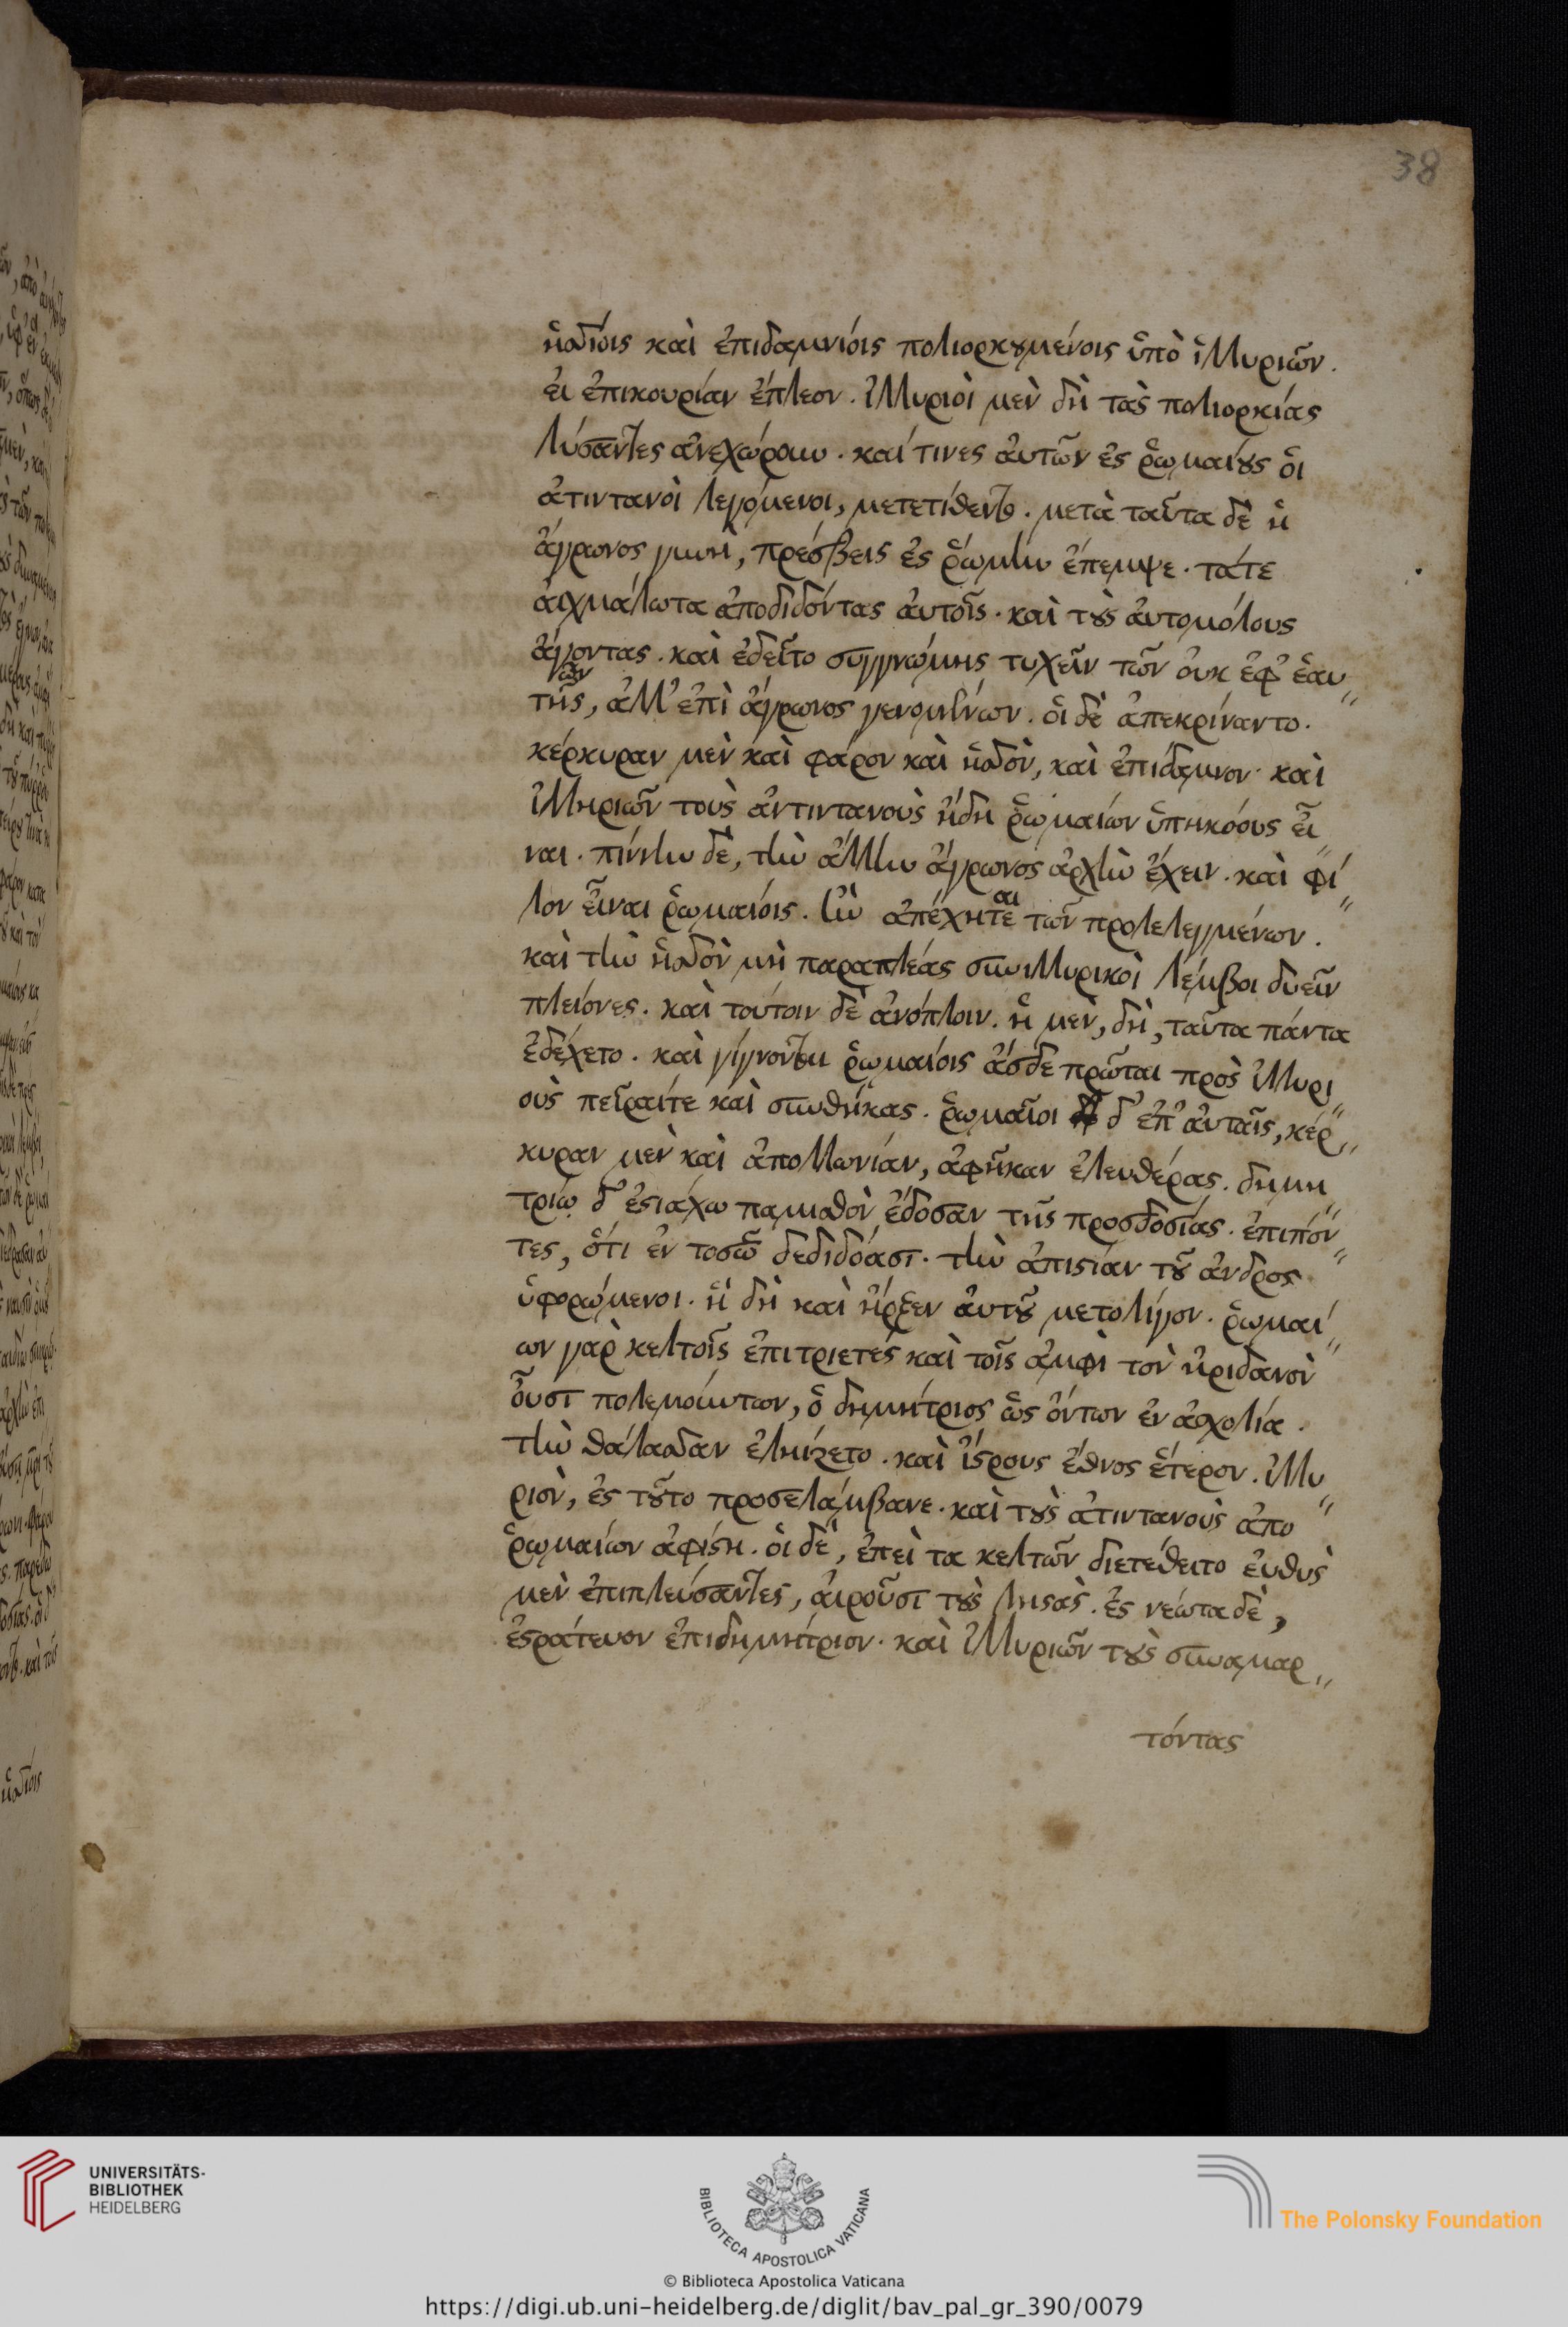 38
ἡσσίοις καὶ ἐπιδαμνίοις πολιορκουμένοις ὑπὸ ἰλλυριῶν.
ἐι ἐπικουρίαν ἔπλεον. ἰλλυριοὶ μὲν δὴ τὰς πολιορκίας
λύσαντες ἀνεχώρουν. καί τινες ἀυτῶν ἐς ῥωμαίους ὁι
ἀτιντανοὶ λεγόμενοι, μετετίθεντο. μετὰ ταῦτα δὲ ἡ
ἄγρωνος γυνὴ, πρέσβεις ἐς ῥώμην ἔπεμψε. τάτε
ἀιχμάλωτα ἀποδιδόντας ἀυτοῖς. καὶ τοὺς ἀυτομόλους
ἄγοντας. καὶ ἐδεῖτο συγγνώμης τυχεῖν τῶν ὀυκ ἐφ' ἑαυ
τῆς, ἀλλ' ἐπὶ ἄγρωνος γενομένων. ὁι δὲ ἀπεκρίναντο.
κέρκυραν μὲν καὶ φάρον καὶ ἡσσὸν, καὶ ἐπίδαμνον. καὶ
ἰλληριῶν τοὺς ἀντιντανοὺς ἤδη ῥωμαίων ὑπηκόους εἶ
ναι. πίννην δὲ, τὴν ἄλλην ἄγρωνος ἀρχὴν ἔχειν. καὶ φί
λον εἶναι ῥωμαίοις. ἢν ἀπέχητε
αι
τῶν προλελεγμένων.
καὶ τὴν ἡσσὸν μὴ παραπλέας συνιλλυρικοὶ λέμβοι δυεῖν
πλείονες. καὶ τούτοιν δὲ ἀνόπλοιν. ἡ μὲν, δὴ, ταῦτα πάντα
ἐδέχετο. καὶ γίγνονται ῥωμαίοις ἅσδε πρῶται πρὸς ἰλλυρι
οὺς πεῖραίτε καὶ συνθῆκας. ῥωμαῖοι δ' ἐπ' ἀυταῖς, κέρ
κυραν μὲν καὶ ἀπολλωνίαν, ἀφῆκαν ἐλευθέρας. δημη
τρίῳ δ' ἐστιάχω παμισθὸν ἔδοσαν τῆς προσδοσίας. ἐπιπόν
τες, ὅτι ἐν τοσῶ δεδιδόασι. τὴν ἀπιστίαν τοῦ ἀνδρος
ὑφορώμενοι. ἣ δὴ καὶ ἤρξεν ἀυτοῦ μετολίγον. ῥωμαί
ων γὰρ κελτοῖς ἐπιτριετὲς καὶ τοῖς ἀμφὶ τὸν ἠριδανὸν
ὖσι πολεμούντων, ὁ δημήτριος ὡς ὄντων ἐν ἀσχολία.
τὴν θάλασσαν ἐληίζετο. καὶ ἴστρους ἔθνος ἕτερον. ἰλλυ
ριὸν, ἐς τοῦτο προσελάμβανε. καὶ τοὺς ἀτιντανοὺς ἀπο
ῥωμαίων ἀφίστη. ὁι δὲ, ἐπεὶ τα κελτῶν διετέθειτο ἐυθὺς
μὲν ἐπιπλεύσαντες, ἀιροῦσι τοὺς ληστὰς. ἐς νέωτα δὲ,
ἐστράτευον ἐπιδημήτριον. καὶ ἰλλυριῶν τοὺς συναμαρ
τόντας
UNIVERSITÄTS-
BIBLIOTHEK
HEIDELBERG
BIBLIOTECA APOSTOLICA VATICANA
The Polonsky Foundation
© Biblioteca Apostolica Vaticana
https://digi.ub.uni-heidelberg.de/diglit/bav_pal_gr_390/0079